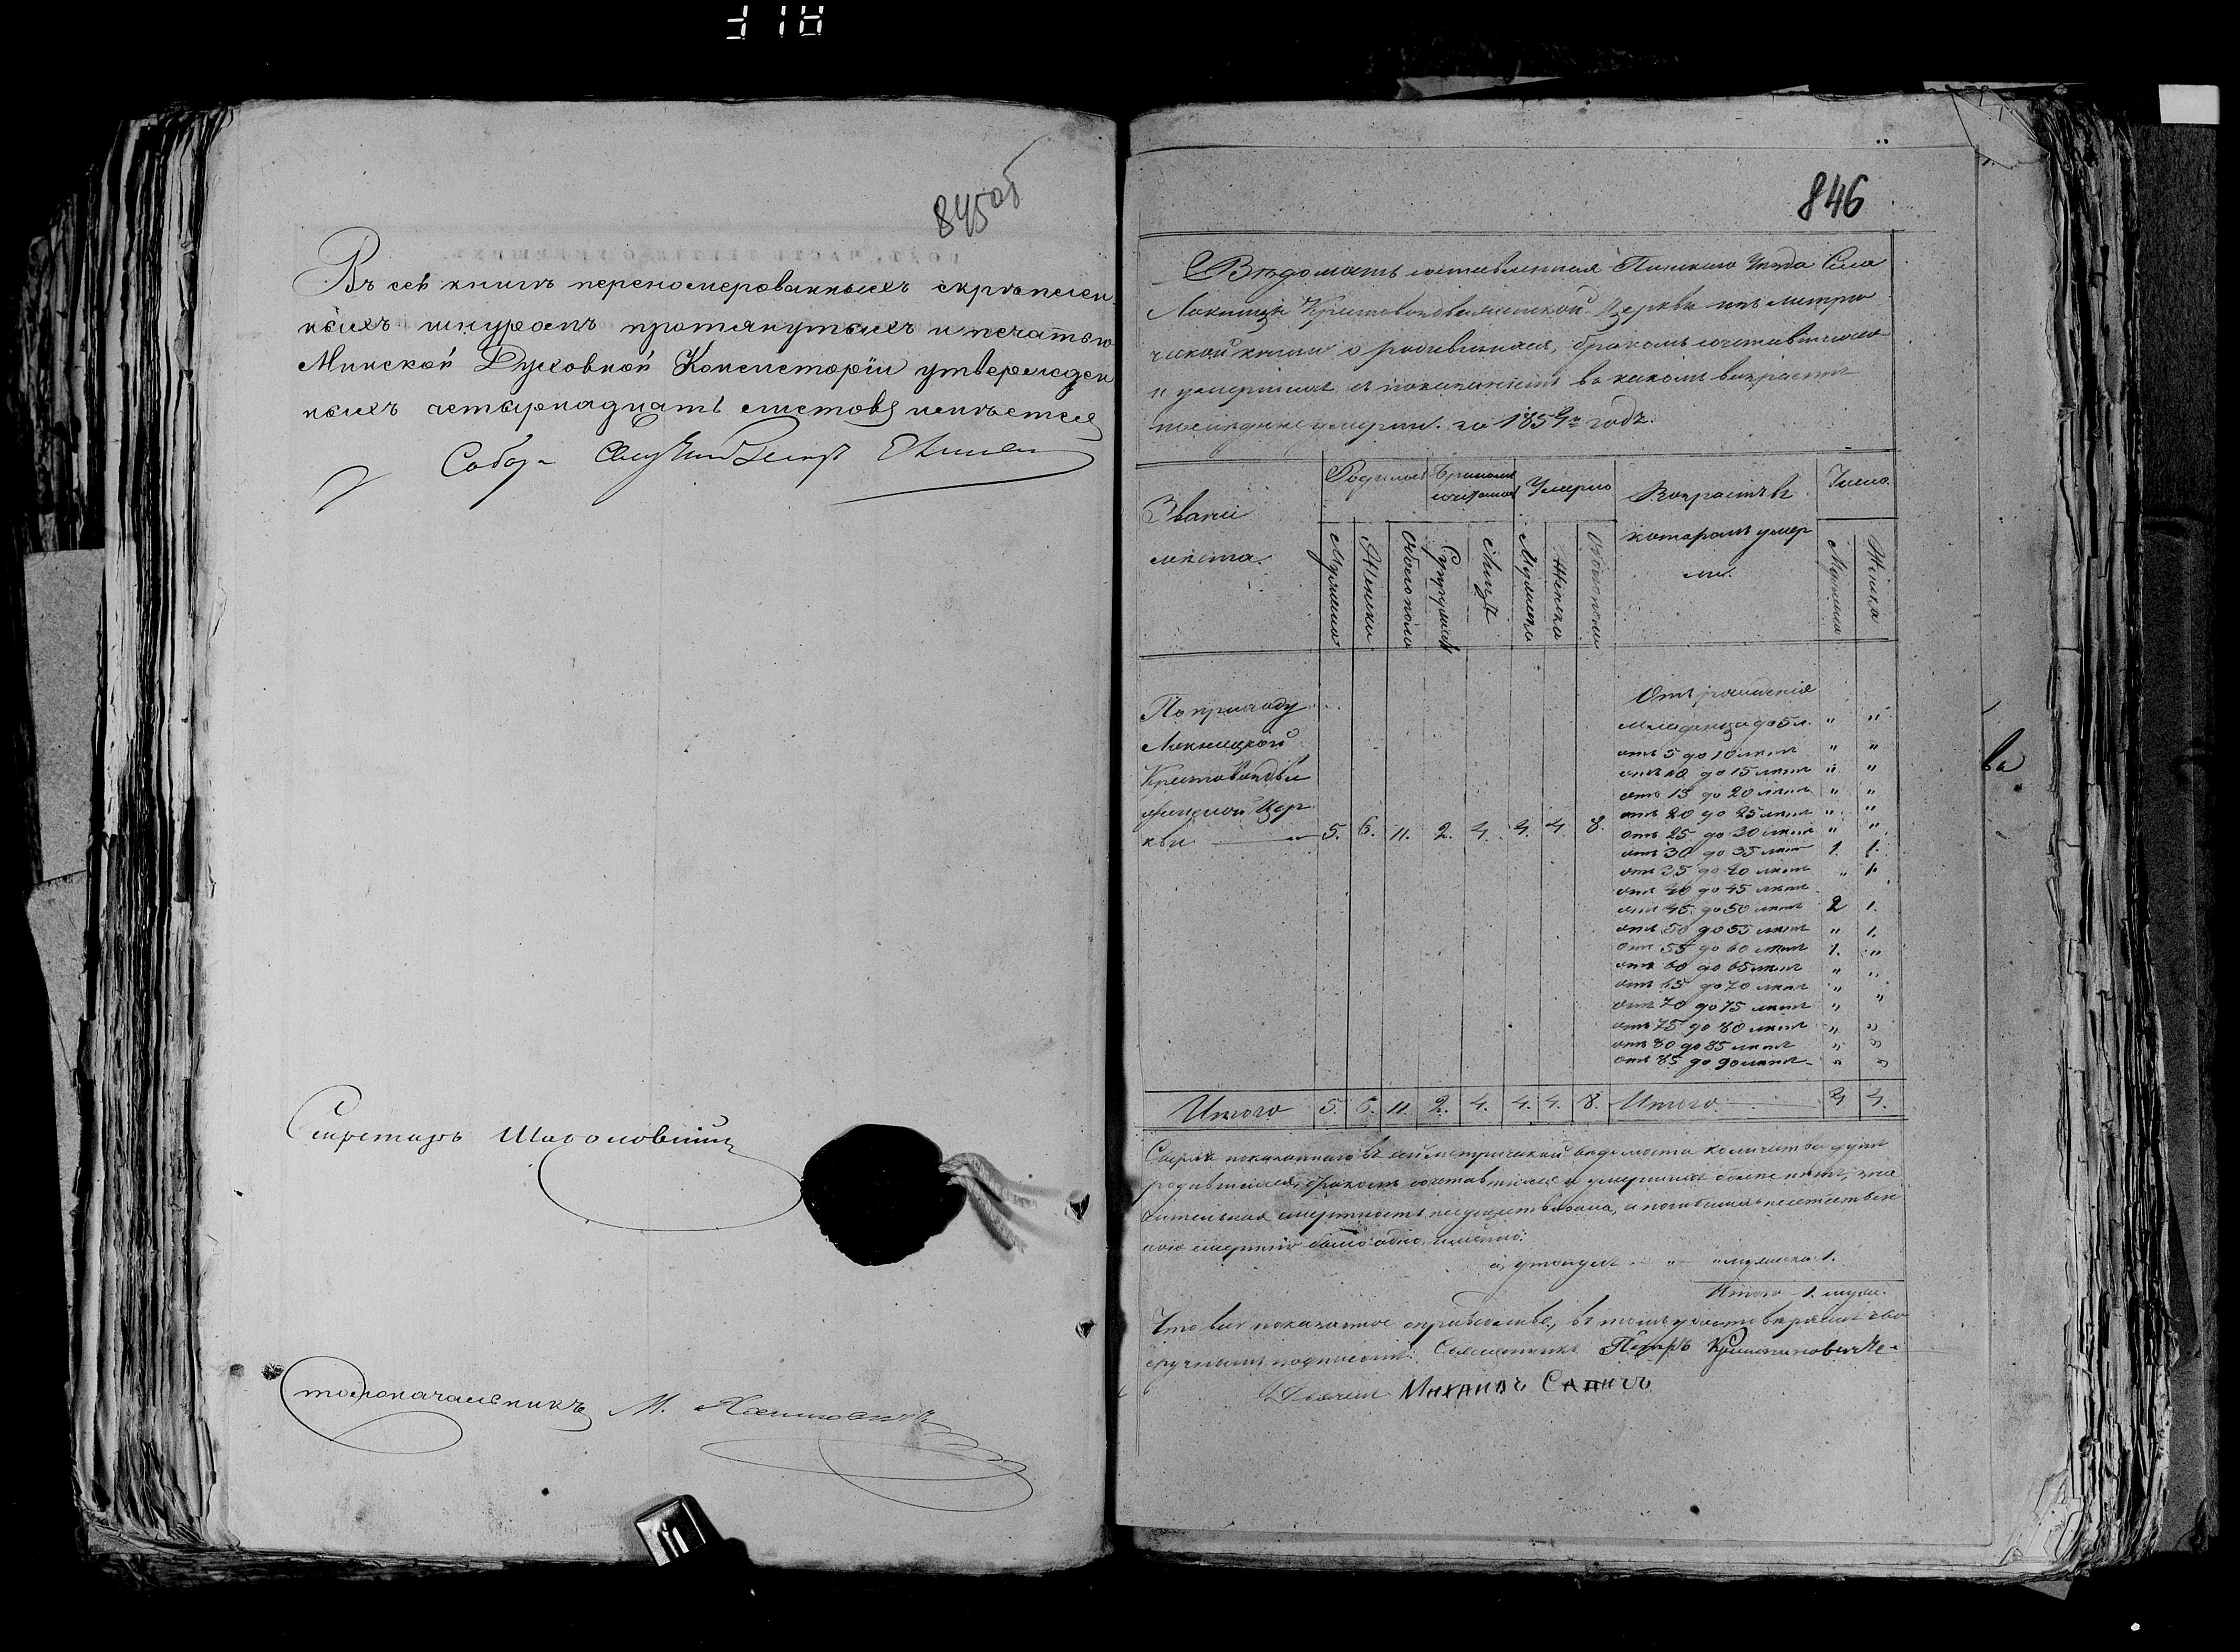 845 об
Въ сей книгѣ переномерованныхъ скрѣплен-
ныхъ шнуромъ протянутыхъ и печатью
Минской Духовной Консисторіи утвержден
ныхъ четырнадцать листовъ имѣется
Собор.
Секретарь
столоначальникъ М.
846
Вѣдомость составленная Пинскаго Уѣзда Села
Локницы Крестовоздвиженской Церкви изъ метри
ческой книги о родившихся, бракомъ сочетавшихся
и умершихъ съ показаніемъ въ какомъ возрастѣ
послѣдніе умерли. за 1854й годъ.
Званіе
мѣста.
Родилось
Мужеска
Женска
Обоего пола
Бракомъ
сочеталось
Супружествъ
Лицъ
Умерло
Мужеска
Женска
Обоего пола
Возрастъ въ
которомъ умер
ли.
Число.
Мужеска
Женска
По приходу
Локницкой
Крестовоздви
женской Цер
кви 5. 6. 11. 2. 4. 4. 4. 8.
Отъ рожденія
младенца до 5 л. " "
отъ 5 до 10 лѣтъ " "
отъ 10 до 15 лѣтъ " "
отъ 15 до 20 лѣтъ " "
отъ 20 до 25 лѣтъ " "
отъ 25 до 30 лѣтъ " "
отъ 30 до 35 лѣтъ 1. 1.
отъ 35 до 40 лѣтъ " 1.
отъ 40 до 45 лѣтъ
отъ 45 до 50 лѣтъ 2 1.
отъ 50 до 55 лѣтъ " 1.
отъ 55 до 60 лѣтъ 1. "
отъ 60 до 65 лѣтъ " "
отъ 65 до 70 лѣтъ "
отъ 70 до 75 лѣтъ " "
отъ 75 до 80 лѣтъ " "
отъ 80 до 85 лѣтъ " "
отъ 85 до 90 лѣтъ " "
Итого 5. 6. 11. 2. 4. 4. 4. 8. Итого 4 4.
Сверхъ показаннаго въ сей метрической вѣдомости количества душъ
родившихся, бракомъ сочетавшихся и умершихъ болѣе нѣтъ, зна
чительная смертность не существовала, а погибшихъ неестествен
ною смертію было одно, именно:
а, утонулъ " мужеска 1.
Итого 1. муж.
Что все показанное справедливо, въ томъ удостовѣряемъ сво
еручными подписами: Священникъ Петръ
Дьячекъ Михаилъ
ва